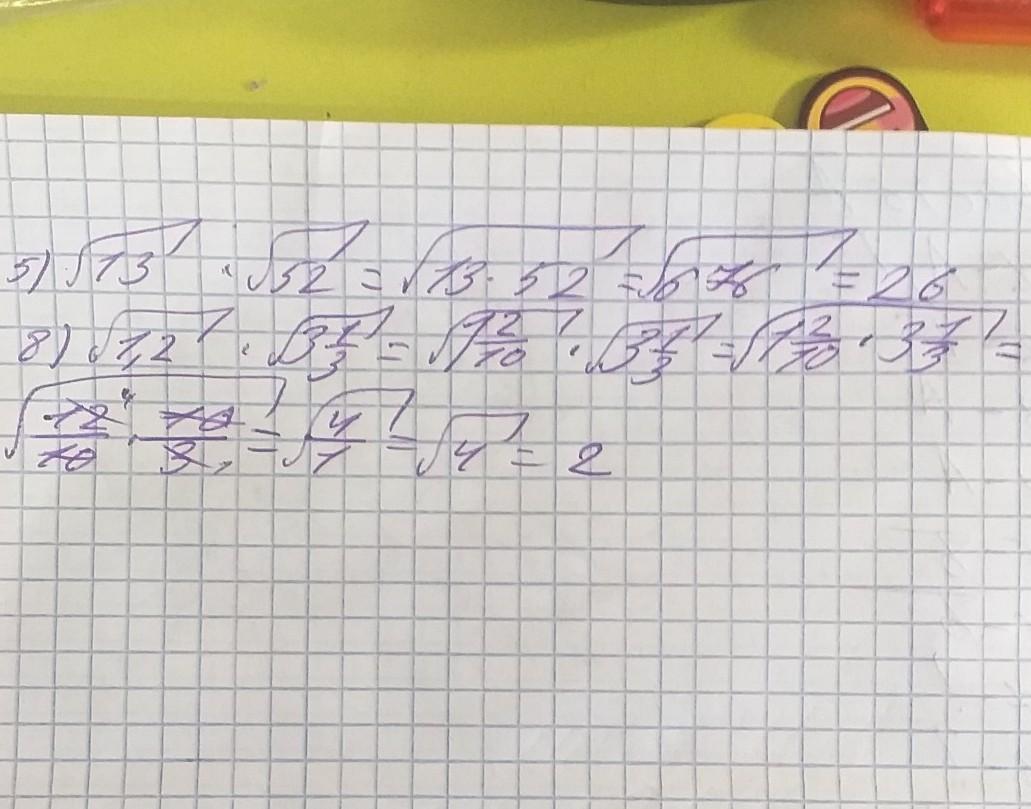 5) √13 · √52 = √13 · 52 = √676 = 26
8) √1,2 · √3 1/3 = √1 2/10 · √3 1/3 = √1 2/10 · 3 1/3 =
√12/10 4 · 10/3 1 = √4/1 = √4 = 2